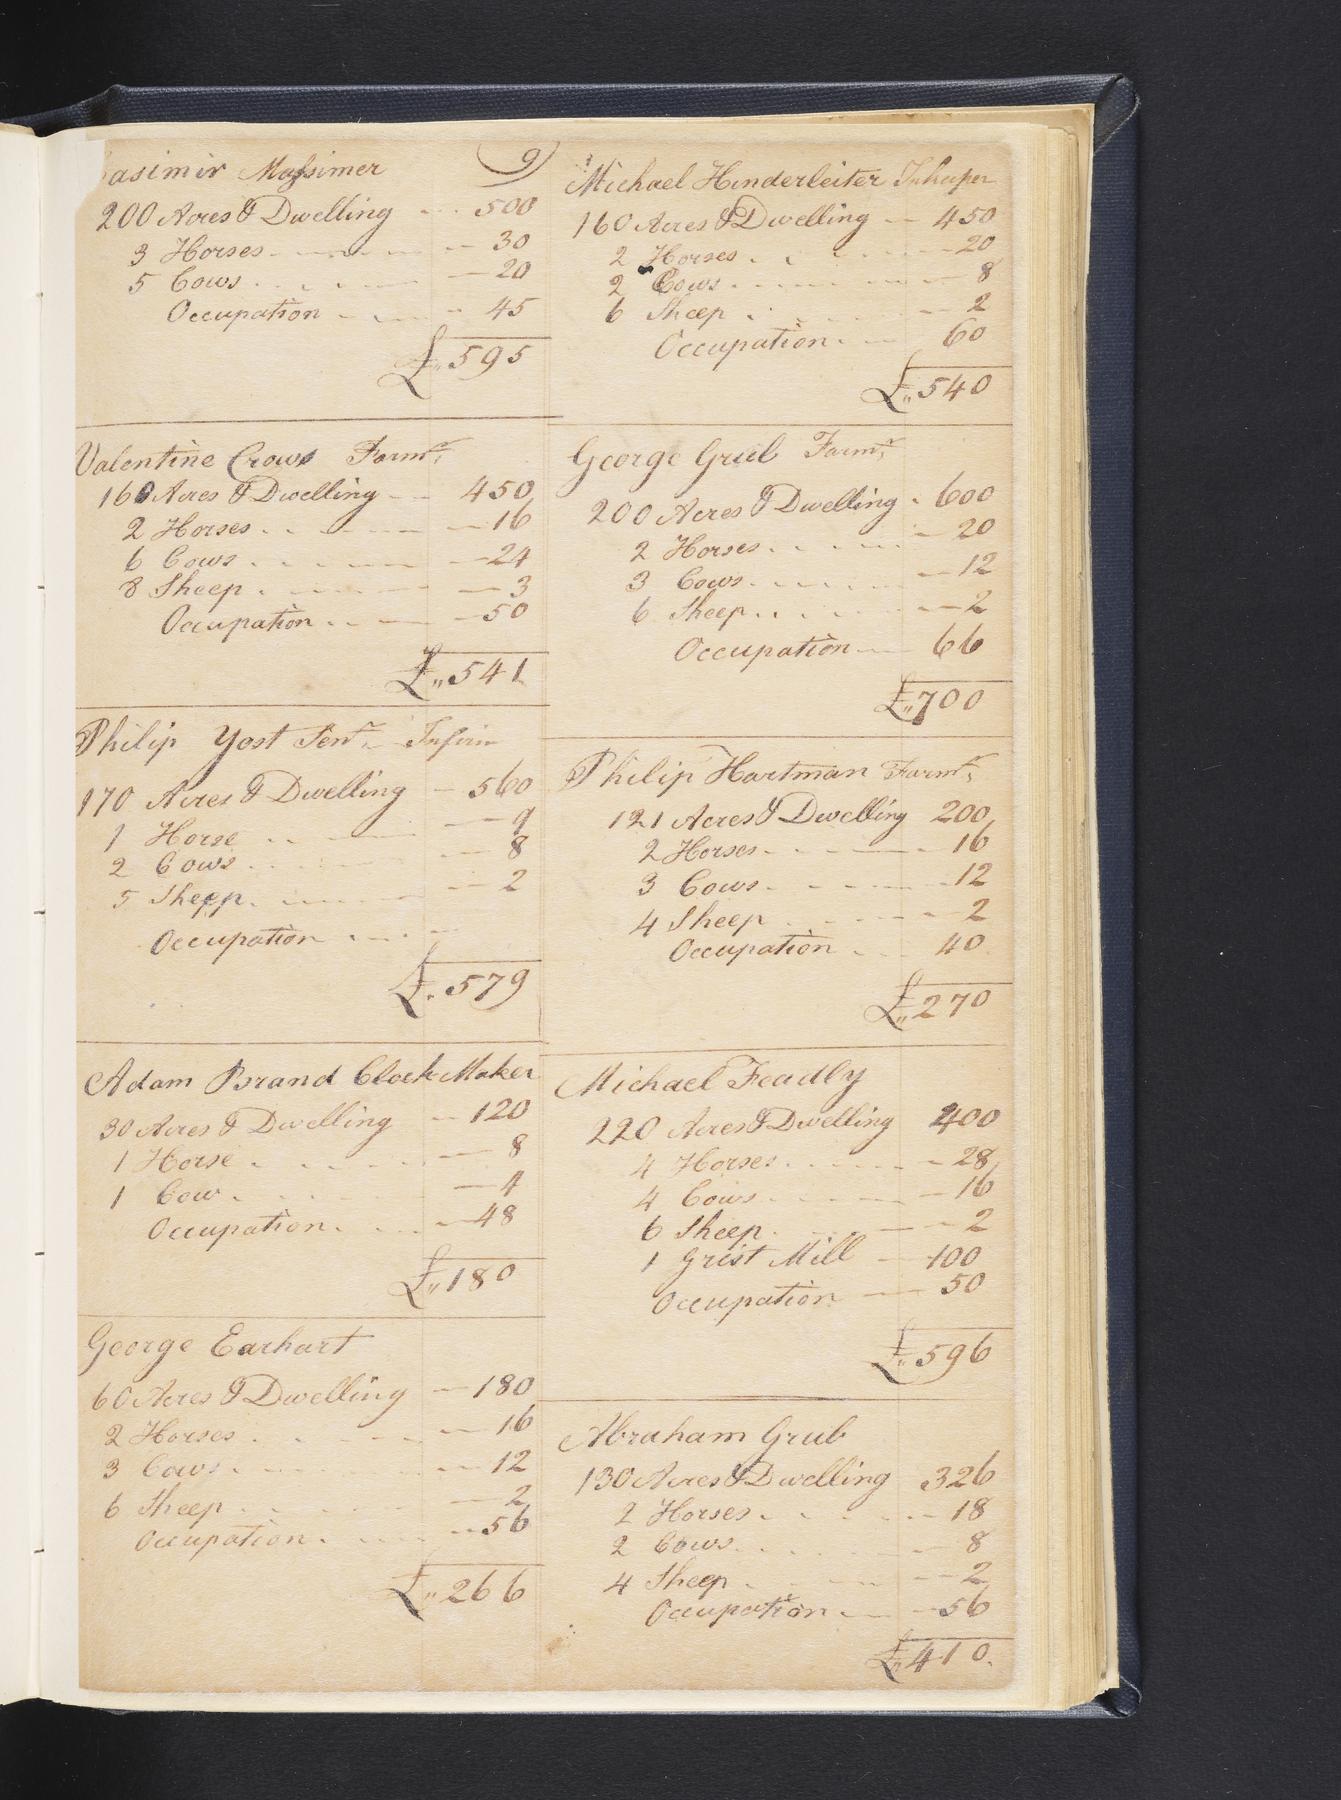 9
asimir Massimer
200 Acres & Dwelling 500
3 Horses 30
5 Cows 20
Occupation 45
£ 595
Valentine Crows Farmr
160 Acres & Dwelling 450
2 Horses 16
6 Cows 24
8 Sheep 3
Occupation 50
£ 541
Philip Yost Senr Infirm
170 Acres & Dwelling 560
1 Horse 9
2 Cows 8
5 Sheep 2
Occupation
£ 579
Adam Brand Clock Maker
30 Acres & Dwelling 120
1 Horse 8
1 Cow 4
Occupation 48
£ 180
George Earhart
60 Acres & Dwelling 180
2 Horses 16
3 Cows 12
6 Sheep 2
Occupation 56
£ 266
Michael Hinderleiter Inkeeper
160 Acres & Dwelling 450
2 Horses 20
2 Cows 8
6 Sheep 2
Occupation 60
£ 540
George Grub Farmr
200 Acres & Dwelling 600
2 Horses 20
3 Cows 12
6 Sheep 2
Occupation 66
£ 700
Philip Hartman Farmr
121 Acres & Dwelling 200
2 Horses 16
3 Cows 12
4 Sheep 2
Occupation 40
£ 270
Michael Feadly
220 Acres & Dwelling 400
4 Horses 28
4 Cows 16
6 Sheep 2
1 Grist Mill 100
Occupation 50
£ 596
Abraham Grub
130 Acres & Dwelling 326
2 Horses 18
2 Cows 8
4 Sheep 2
Occupation 56
£ 410.